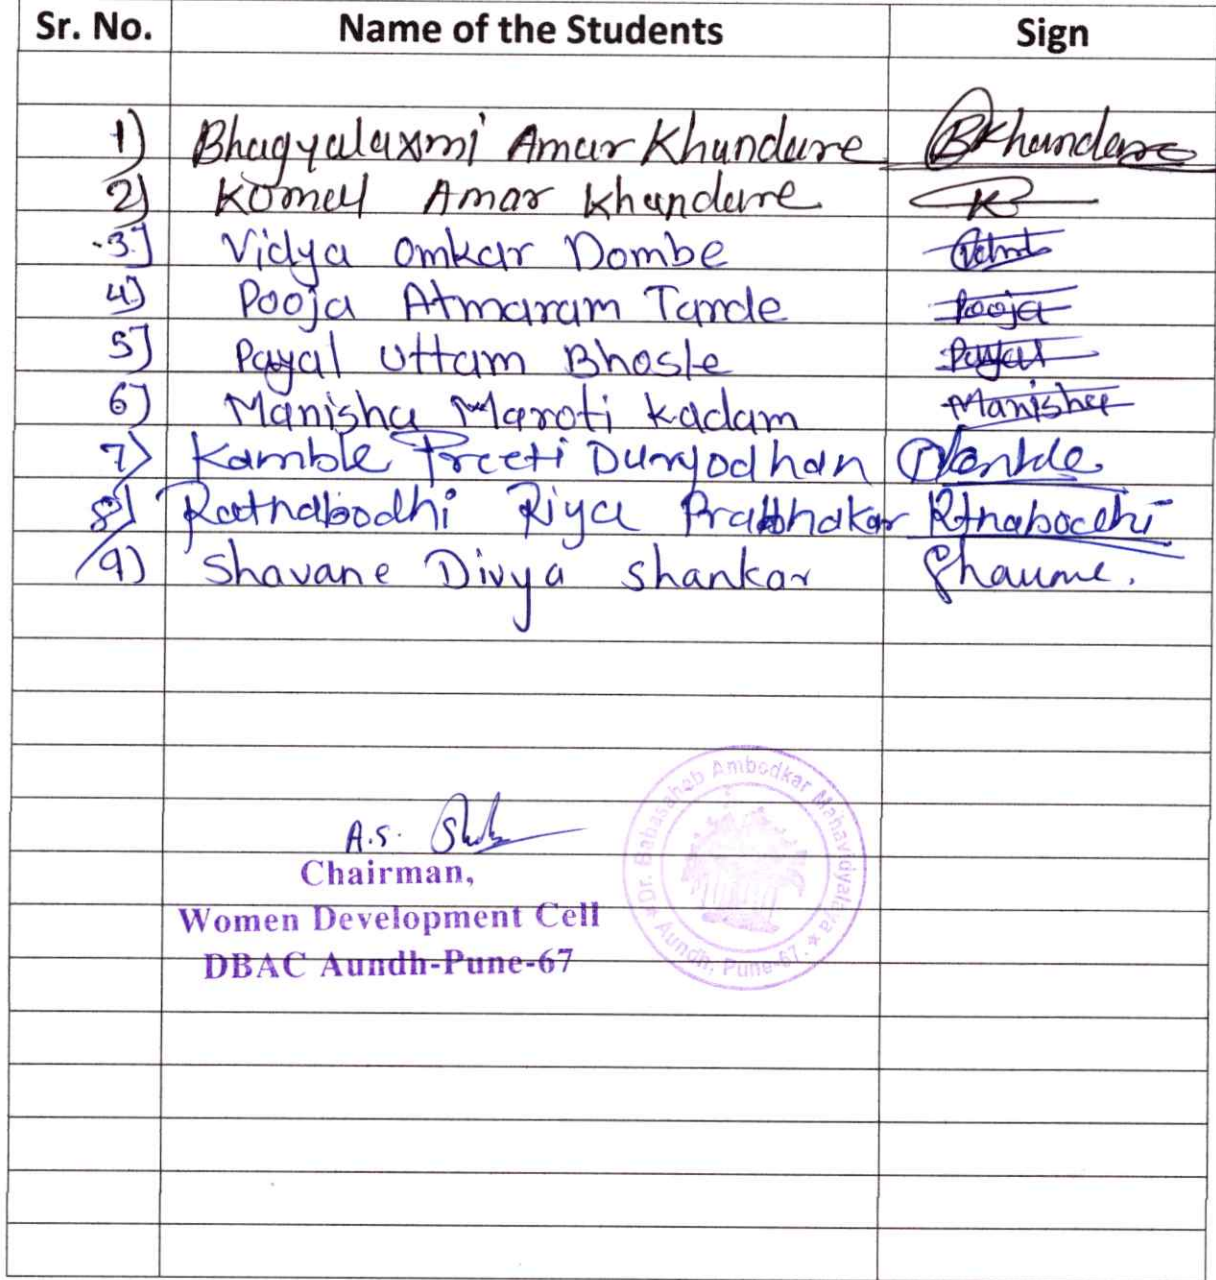 Sr. No. Name of the Students Sign
1) Bhagyalaxmi Amar Khandare BKhandare
2) Komal Amar Khandare K
3] Vidya Omkar Dombe
4) Pooja Atmaram Tarde Pooja
5] Payal Uttam Bhosle Payal
6) Manisha Maroti Kadam Manisha
7) Kamble Preeti Duryodhan
8) Ratnabodhi Riya Prabhakar Rtnabodhi
9) Shavane Divya Shankar
A.S.
Chairman,
Women Development Cell
DBAC Aundh-Pune-67
Dr. Babasaheb Ambedkar Mahavidyalaya
Aundh, Pune-67.